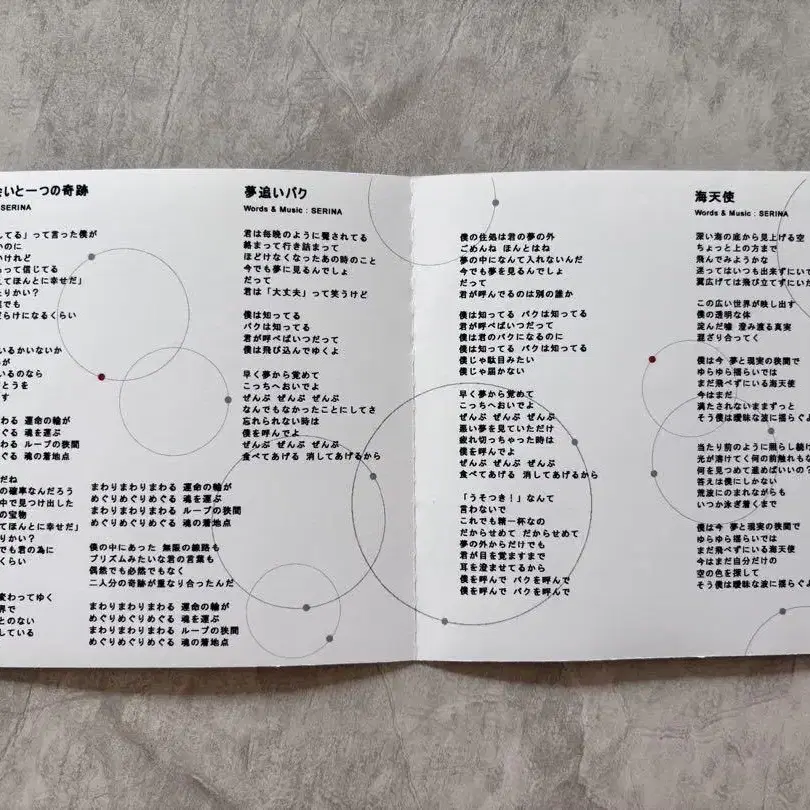 いと一つの奇跡
SERINA
してる」って言った僕が
いのに
いけれど
って信じてる
えてほんとに幸せだ」
たりかい？
でも
だらけになるくらい
いるかいないか
が
いるのなら
とうを
す
わる 運命の輪が
ぐる 魂を運ぶ
わる ループの狭間
ぐる 魂の着地点
だね
の確率なんだろう
中で見つけ出した
の宝物
てほんとに幸せだ」
りかい？
でも君の為に
くらい
変わってゆく
界で
とのない
している
まわりまわりまわる 運命の輪が
めぐりめぐりめぐる 魂を運ぶ
まわりまわりまわる ループの狭間
めぐりめぐりめぐる 魂の着地点
僕の中にあった 無限の線路も
プリズムみたいな君の言葉も
偶然でも必然でもなく
二人分の奇跡が重なり合ったんだ
まわりまわりまわる 運命の輪が
めぐりめぐりめぐる 魂を運ぶ
まわりまわりまわる ループの狭間
めぐりめぐりめぐる 魂の着地点
夢追いバク
Words & Music : SERINA
君は毎晩のように魘されてる
絡まって行き詰まって
ほどけなくなったあの時のこと
今でも夢に見るんでしょ
だって
君は「大丈夫」って笑うけど
僕は知ってる
バクは知ってる
君が呼べばいつだって
僕は飛び込んでゆくよ
早く夢から覚めて
こっちへおいでよ
ぜんぶ ぜんぶ ぜんぶ
なんでもなかったことにしてさ
忘れられない時は
僕を呼んでよ
ぜんぶ ぜんぶ ぜんぶ
食べてあげる 消してあげるから
僕の住処は君の夢の外
ごめんね ほんとはね
夢の中になんて入れないんだ
今でも夢を見るんでしょ
だって
君が呼んでるのは別の誰か
僕は知ってる バクは知ってる
君が呼べばいつだって
僕は君のバクになるのに
僕は知ってる バクは知ってる
僕じゃ駄目みたい
僕じゃ届かない
早く夢から覚めて
こっちへおいでよ
ぜんぶ ぜんぶ ぜんぶ
悪い夢を見ていただけ
疲れ切っちゃった時は
僕を呼んでよ
ぜんぶ ぜんぶ ぜんぶ
食べてあげる 消してあげるから
「うそつき！」なんて
言わないで
これでも精一杯なの
だからせめて だからせめて
夢の外からだけでも
君が目を覚ますまで
耳を澄ませてるから
僕を呼んで バクを呼んで
僕を呼んで バクを呼んで
海天使
Words & Music : SERINA
深い海の底から見上げる空
ちょっと上の方まで
飛んでみようかな
迷ってはいつも出来ずにいて
翼広げては飛び立てずにいた
この広い世界が映し出す
僕の透明な体
淀んだ嘘 澄み渡る真実
混ざり合ってく
僕は今 夢と現実の狭間で
ゆらゆら揺らいでは
まだ飛べずにいる海天使
今はまだ
満たされないままずっと
そう僕は曖昧な波に揺らぐよ
当たり前のように照らし続け
光が溶けてく何の前触れもな
何を見つめて進めばいいの？
答えは僕にしかない
荒波にのまれながらも
いつか泳ぎ着くまで
僕は今 夢と現実の狭間で
ゆらゆら揺らいでは
まだ飛べずにいる海天使
今はまだ自分だけの
空の色を探して
そう僕は曖昧な波に揺らぐよ